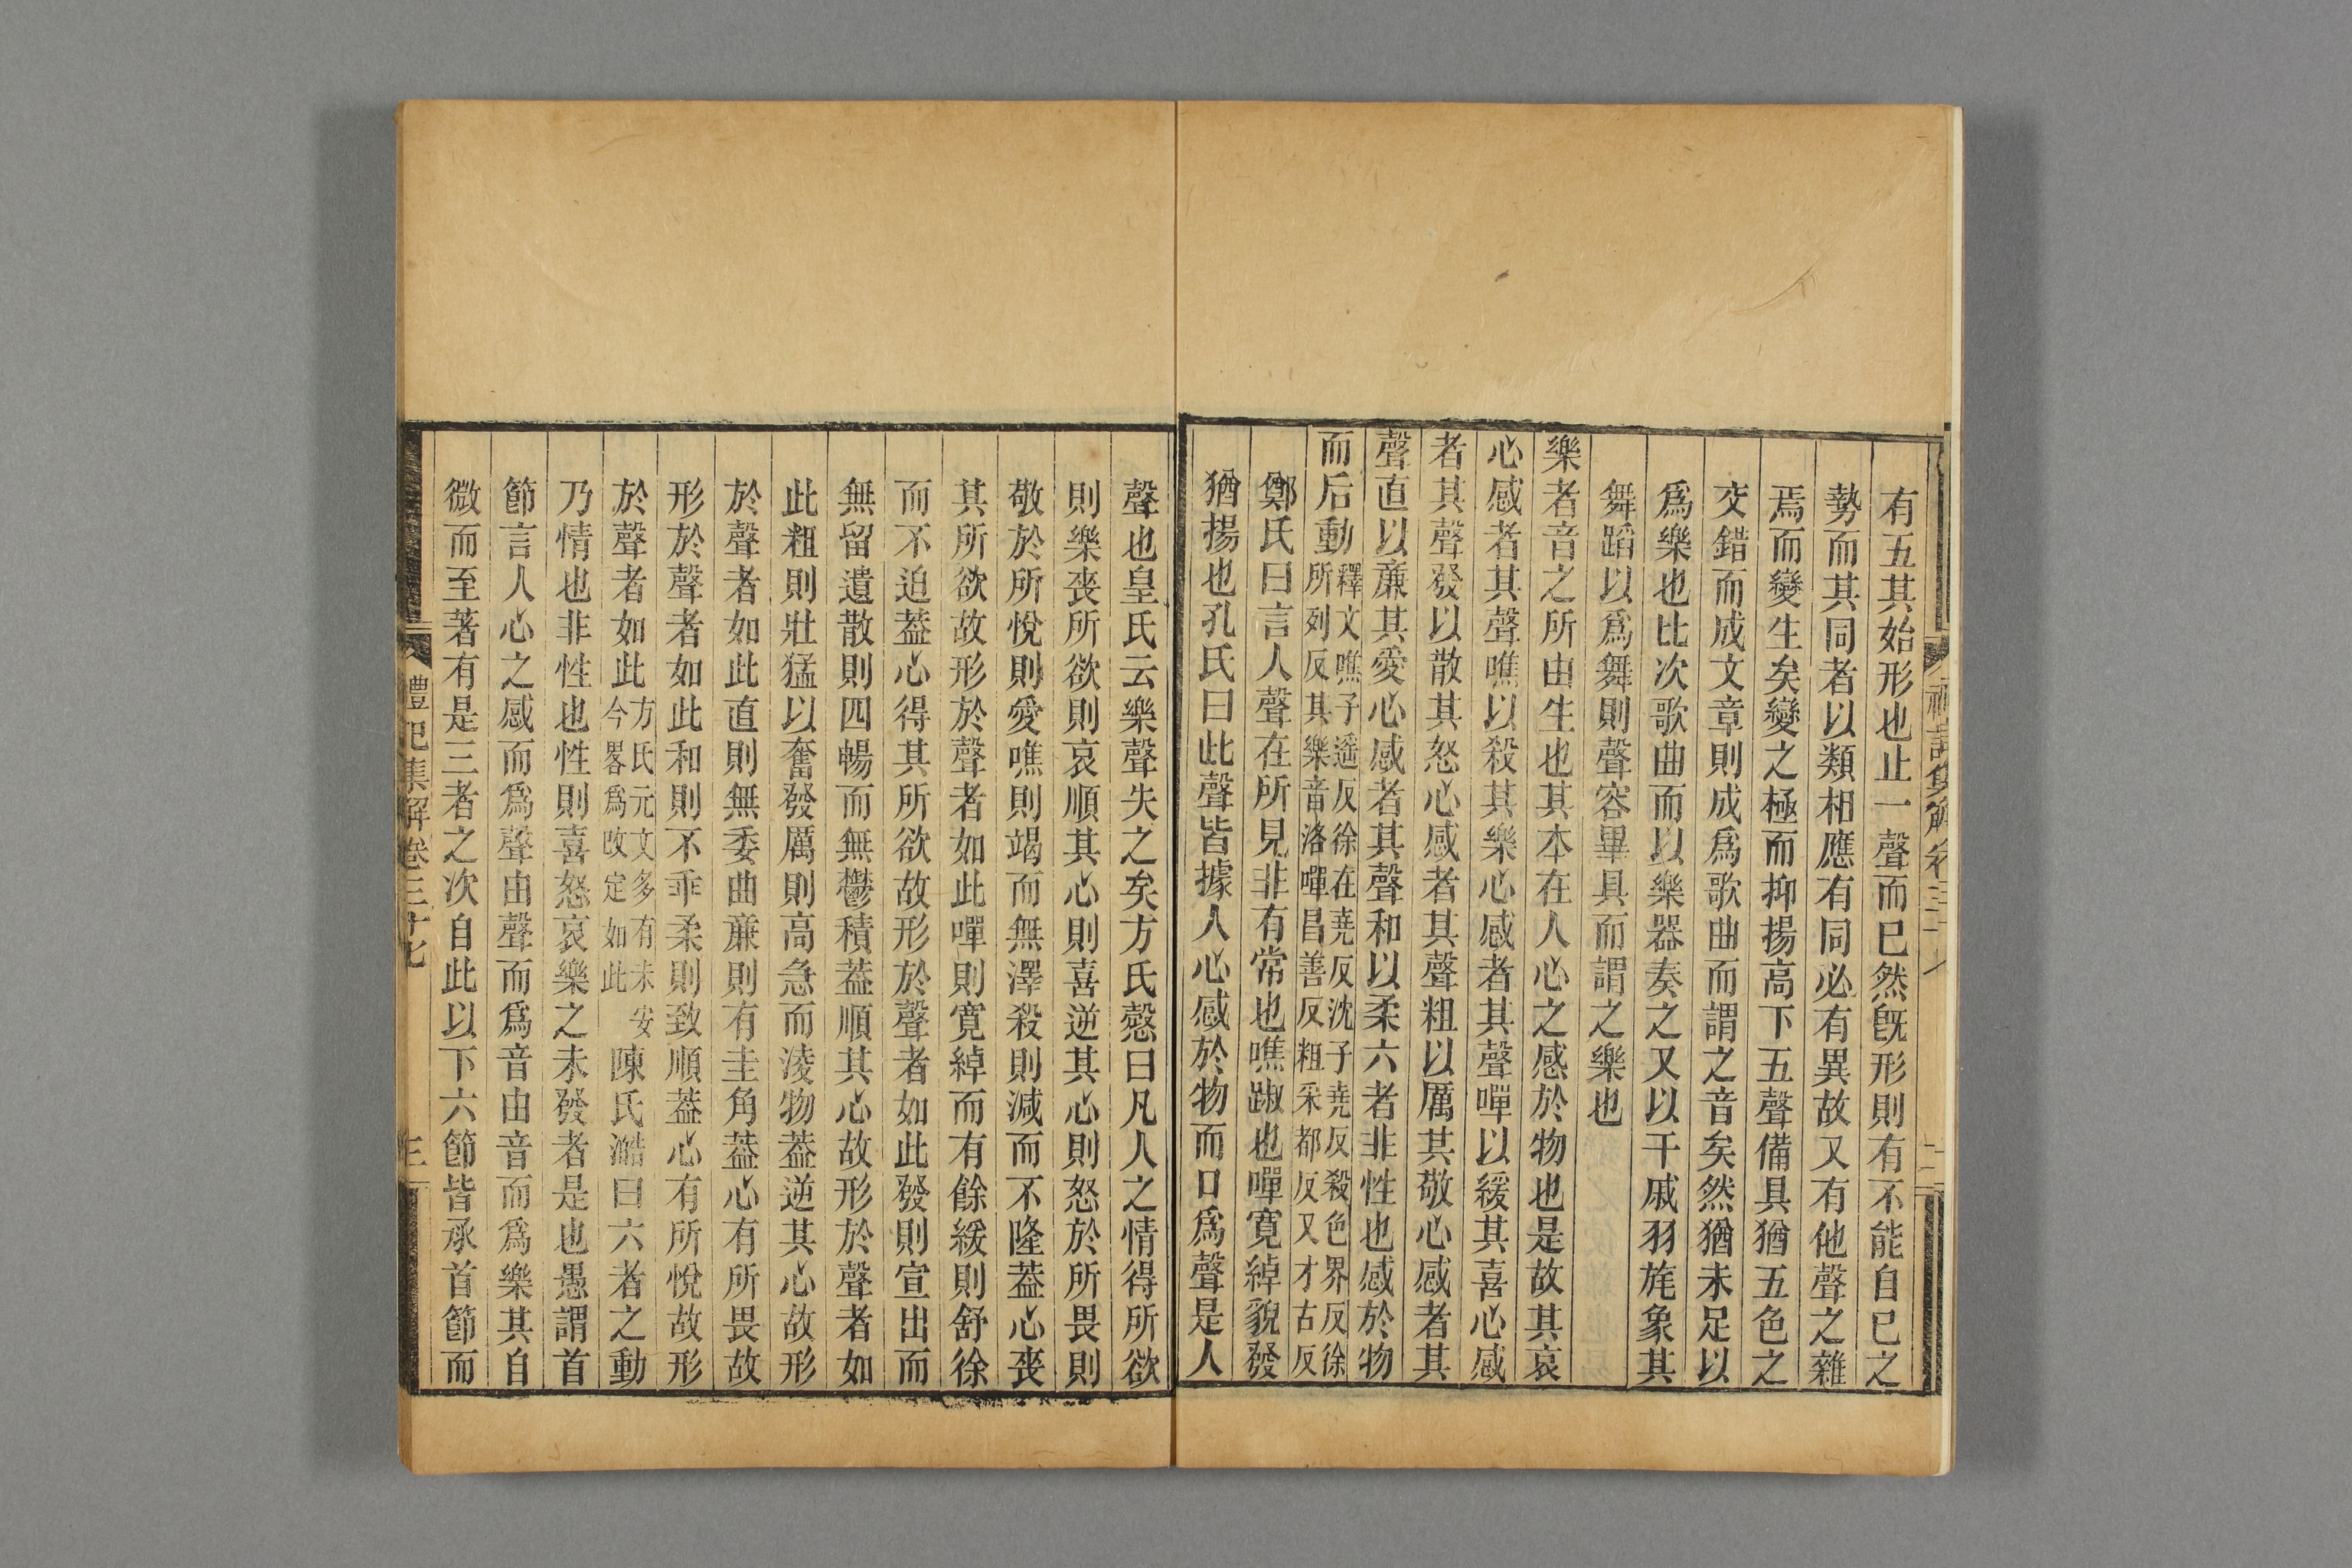 有五其始形也止一聲而已然旣形則有不能自已之
勢而其同者以類相應有同必有異故又有他聲之雜
焉而變生矣變之極而抑揚高下五聲備具猶五色之
交錯而成文章則成爲歌曲而謂之音矣然猶未足以
爲樂也比次歌曲而以樂器奏之又以干戚羽旄象其
舞蹈以爲舞則聲容畢具而謂之樂也
樂者音之所由生也其本在人心之感於物也是故其哀
心感者其聲噍以殺其樂心感者其聲嘽以緩其喜心感
者其聲發以散其怒心感者其聲粗以厲其敬心感者其
聲直以廉其愛心感者其聲和以柔六者非性也感於物
而后動釋文噍子遥反徐在堯反沈子堯反殺色界反徐所列反其樂音洛嘽昌善反粗采都反又才古反
鄭氏曰言人聲在所見非有常也噍踧也嘽寛綽貌發
猶揚也孔氏曰此聲皆據人心感於物而口爲聲是人
聲也皇氏云樂聲失之矣方氏慤曰凡人之情得所欲
則樂喪所欲則哀順其心則喜逆其心則怒於所畏則
敬於所悅則愛噍則竭而無澤殺則減而不隆葢心喪
其所欲故形於聲者如此嘽則寛綽而有餘緩則舒徐
而不迫葢心得其所欲故形於聲者如此發則宣出而
無留遺散則四暢而無鬱積葢順其心故形於聲者如
此粗則壯猛以奮發厲則高急而淩物葢逆其心故形
於聲者如此直則無委曲廉則有圭角葢心有所畏故
形於聲者如此和則不乖柔則致順葢心有所悅故形
於聲者如此方氏元文多有未安今畧爲改定如此陳氏澔曰六者之動
乃情也非性也性則喜怒哀樂之未發者是也愚謂首
節言人心之感而爲聲由聲而爲音由音而爲樂其自
微而至著有是三者之次自此以下六節皆承首節而
禮記集解卷三十七
三